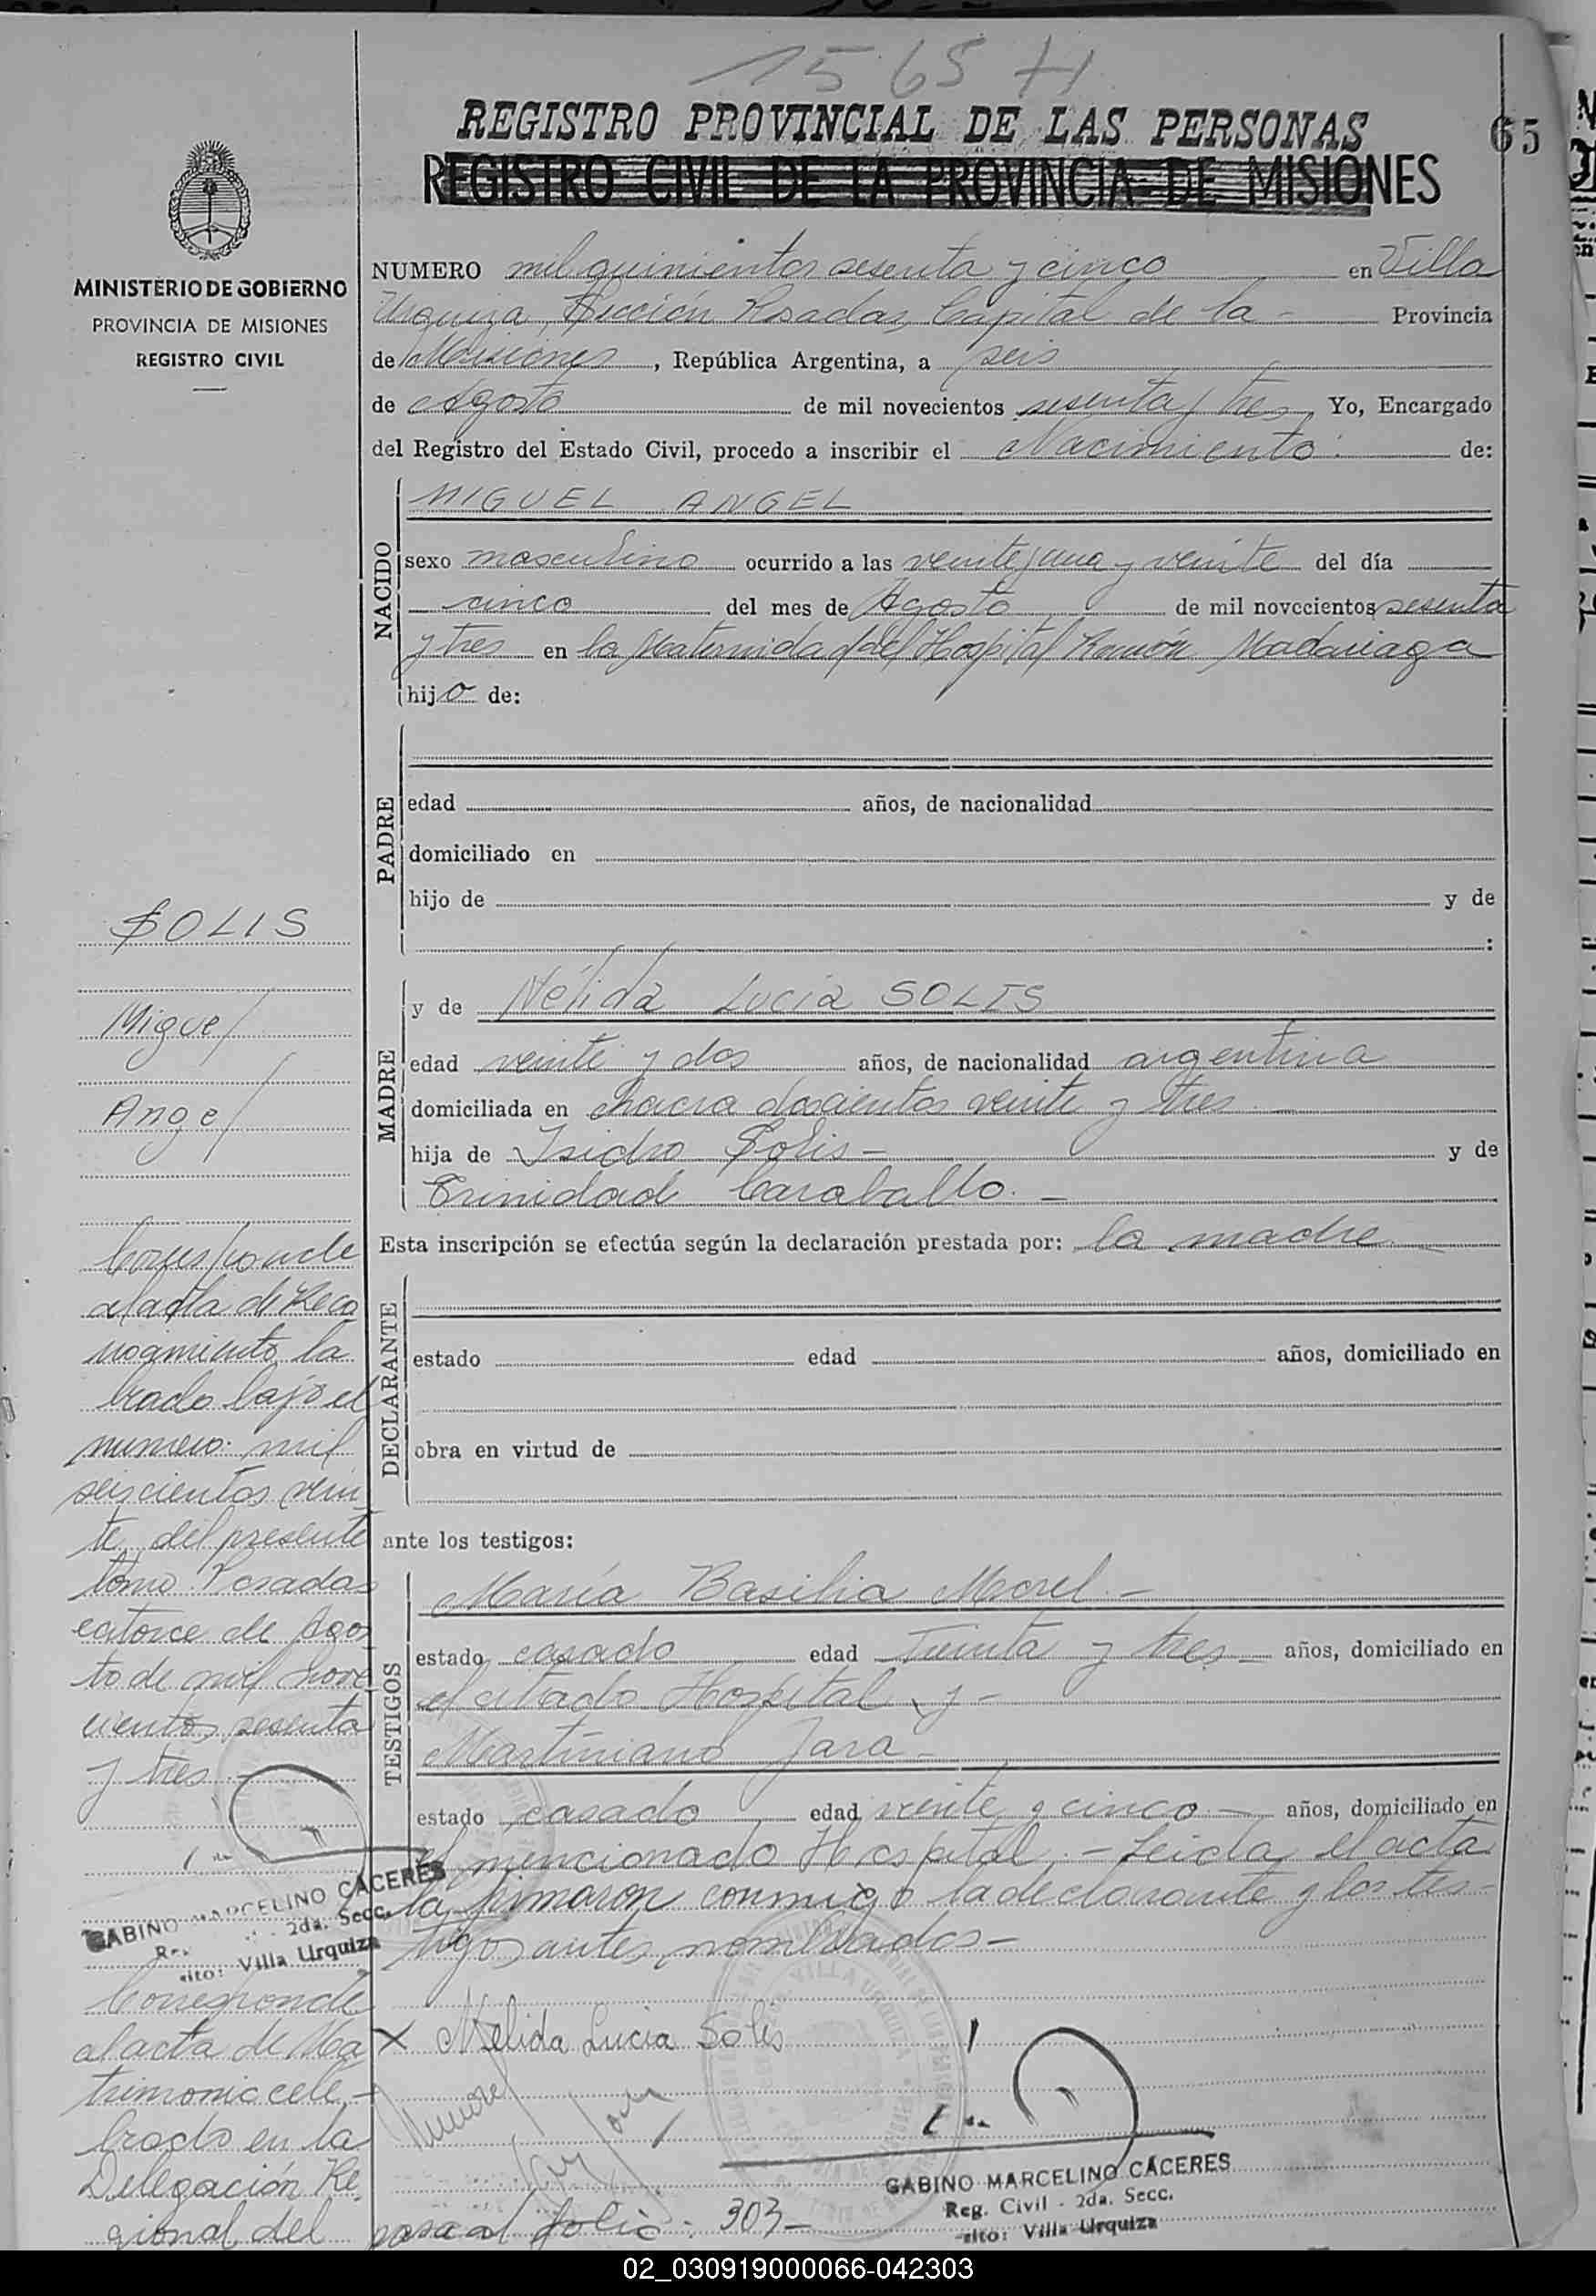 1565 H
REGISTRO PROVINCIAL DE LAS PERSONAS
65
REGISTRO CIVIL DE LA PROVINCIA DE MISIONES
MINISTERIO DE GOBIERNO
PROVINCIA DE MISIONES
REGISTRO CIVIL
NUMERO mil quinientos sesenta y cinco en Villa
Urquiza, Sección Posadas, Capital de la - Provincia
de Misiones, República Argentina, a seis
de Agosto de mil novecientos sesenta y tres Yo, Encargado
del Registro del Estado Civil, procedo a inscribir el Nacimiento de:
NACIDO
MIGUEL ANGEL
sexo masculino ocurrido a las veinte y una y veinte del día
cinco del mes de Agosto de mil novecientos sesenta
y tres en la Maternidad del Hospital Ramón Madariaga
hijo de:
PADRE
edad años, de nacionalidad
domiciliado en
hijo de y de
:
MADRE
y de Nélida Lucía SOLIS
edad veinte y dos años, de nacionalidad argentina
domiciliada en chacra doscientos veinte y tres
hija de Isidro Solis - y de
Trinidad Caraballo. -
Esta inscripción se efectúa según la declaración prestada por: la madre
DECLARANTE
estado edad años, domiciliado en
obra en virtud de
ante los testigos:
TESTIGOS
María Basilia Morel -
estado casado edad Treinta y tres - años, domiciliado en
el citado Hospital y -
Martiniano Jara -
estado casado edad veinte y cinco - años, domiciliado en
el mencionado Hospital. - Leida el acta
la firmaron conmigo la declarante y los tes-
tigos antes nombrados -
X Nelida Lucia Solis
GABINO MARCELINO CACERES
Reg. Civil - 2da. Secc.
Villa Urquiza
pasa al folio: 303 -
SOLIS
Miguel
Angel
Corresponde
al acta de Reco
nocimiento la
brado bajo el
numero: mil
seiscientos vein
te del presente
tomo Posadas
catorce de Agos
to de mil nove
cientos sesenta
y tres
GABINO MARCELINO CACERES
2da. Secc.
Villa Urquiza
Corresponde
al acta de Ma
trimonio cele-
brado en la
Delegación Re
gional del
02_030919000066-042303